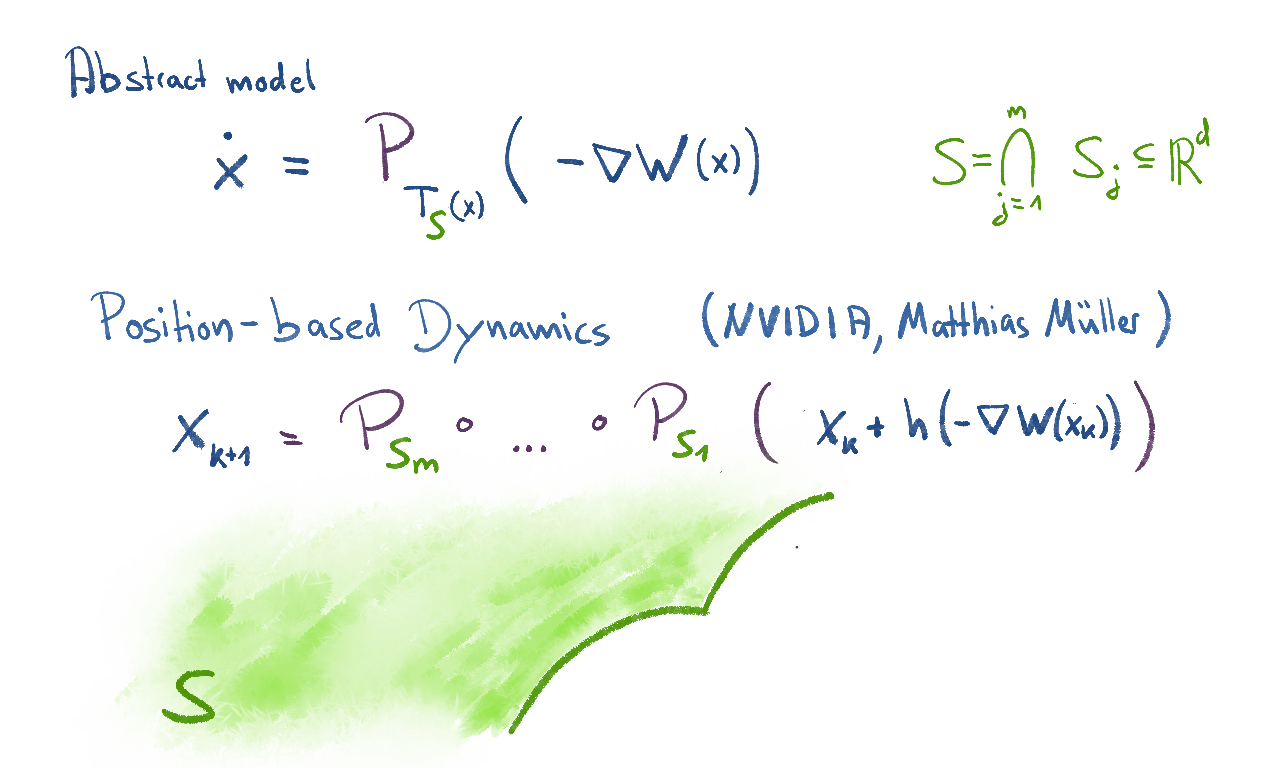 Abstract model
ẋ = P_{T_S(x)} (-∇W(x))    S = ⋂_{j=1}^{m} S_j ⊆ ℝ^d
Position-based Dynamics (NVIDIA, Matthias Müller)
x_{k+1} = P_{S_m} ∘ ... ∘ P_{S_1} (x_k + h(-∇W(x_k)))
S